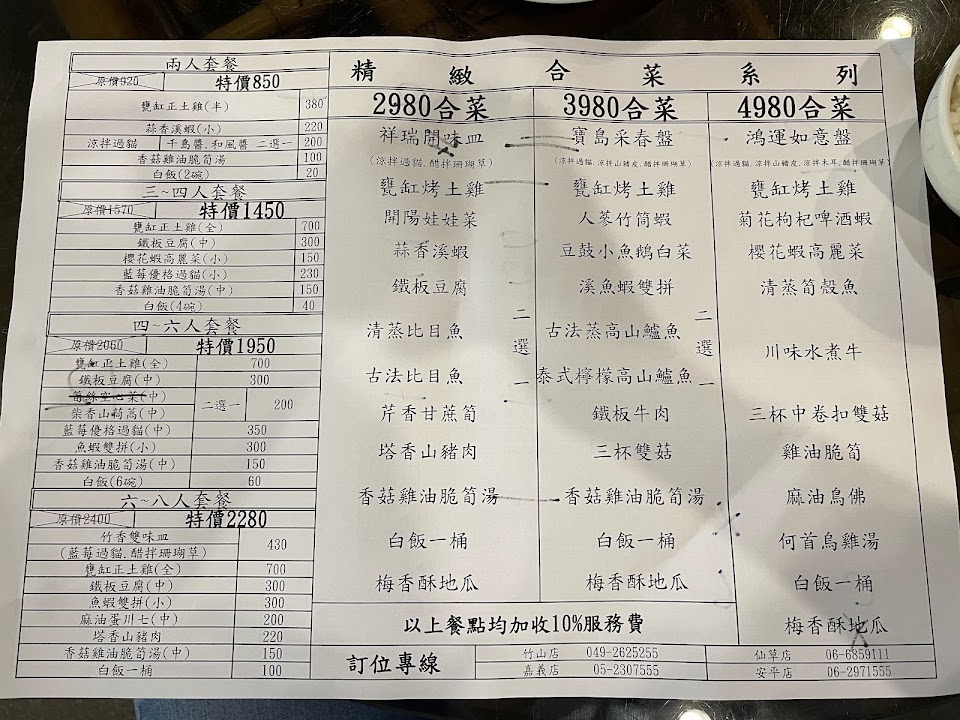 兩人套餐
原價920 特價850
甕缸正土雞(半) 380
蒜香溪蝦(小) 220
涼拌過貓 千島醬.和風醬 二選一 200
香菇雞油脆筍湯 100
白飯(2碗) 20
三~四人套餐
原價1570 特價1450
甕缸正土雞(全) 700
鐵板豆腐(中) 300
櫻花蝦高麗菜(小) 150
藍莓優格過貓(小) 230
香菇雞油脆筍湯(中) 150
白飯(4碗) 40
四~六人套餐
原價2060 特價1950
甕缸正土雞(全) 700
鐵板豆腐(中) 300
筍絲空心菜(中) 二選一 200
柴香山茼蒿(中)
藍莓優格過貓(中) 350
魚蝦雙拼(小) 300
香菇雞油脆筍湯(中) 150
白飯(6碗) 60
六~八人套餐
原價2400 特價2280
竹香雙味皿 430
(藍莓過貓.醋拌珊瑚草)
甕缸正土雞(全) 700
鐵板豆腐(中) 300
魚蝦雙拼(小) 300
麻油蛋川七(中) 200
塔香山豬肉 220
香菇雞油脆筍湯(中) 150
白飯一桶 100
精緻合菜系列
2980合菜
祥瑞開味皿
(涼拌過貓.醋拌珊瑚草)
甕缸烤土雞
開陽娃娃菜
蒜香溪蝦
鐵板豆腐
清蒸比目魚
古法比目魚
二選一
芹香甘蔗筍
塔香山豬肉
香菇雞油脆筍湯
白飯一桶
梅香酥地瓜
3980合菜
寶島采春盤
(涼拌過貓.涼拌山豬皮.醋拌珊瑚草)
甕缸烤土雞
人蔘竹筒蝦
豆鼓小魚鵝白菜
溪魚蝦雙拼
古法蒸高山鱸魚
泰式檸檬高山鱸魚
二選一
鐵板牛肉
三杯雙菇
香菇雞油脆筍湯
白飯一桶
梅香酥地瓜
4980合菜
鴻運如意盤
(涼拌過貓.涼拌山豬皮.涼拌木耳.醋拌珊瑚草)
甕缸烤土雞
菊花枸杞啤酒蝦
櫻花蝦高麗菜
清蒸筍殼魚
川味水煮牛
三杯中卷扣雙菇
雞油脆筍
麻油鳥佛
何首烏雞湯
白飯一桶
梅香酥地瓜
以上餐點均加收10%服務費
訂位專線
竹山店 049-2625255 仙草店 06-6859111
嘉義店 05-2307555 安平店 06-2971555